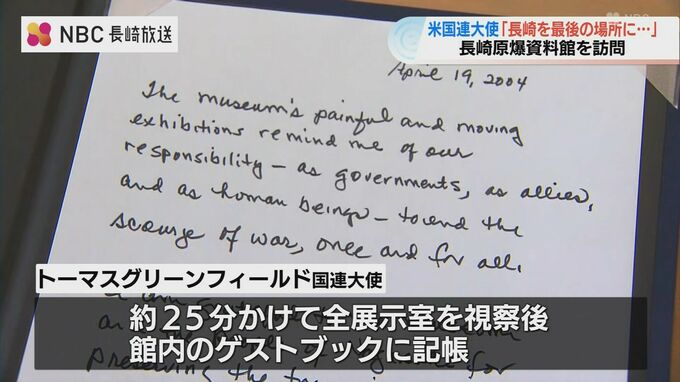 NBC 長崎放送
NBC
米国連大使「長崎を最後の場所に…」
長崎原爆資料館を訪問
April 19, 2004
The museum's painful and moving
exhibitions remind me of our
responsibility - as governments, as allies,
and as human beings - to end the
scourge of war, once and for all.
トーマスグリーンフィールド国連大使
約25分かけて全展示室を視察後
館内のゲストブックに記帳
preserving the for